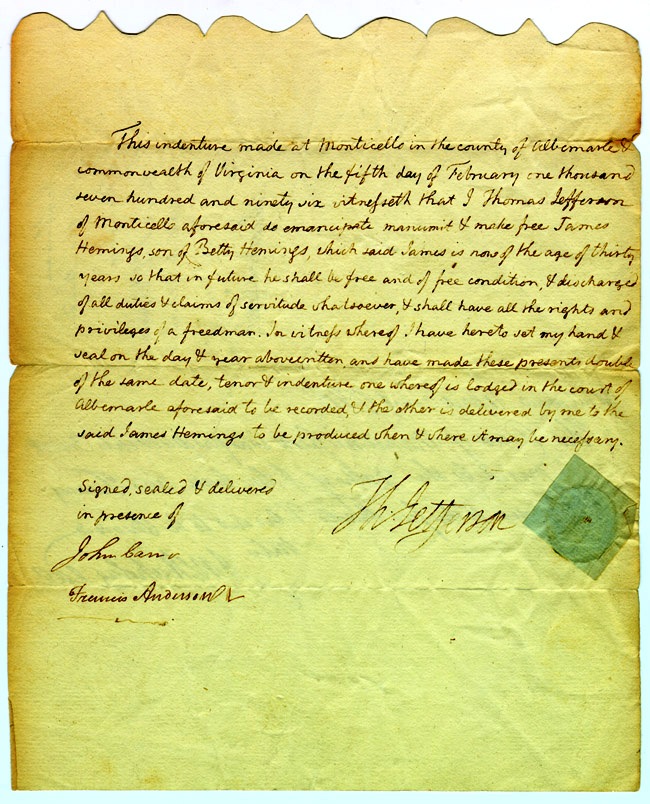 This indenture made at Monticello in the county of Albemarle &
commonwealth of Virginia on the fifth day of February one thousand
seven hundred and ninety six witnesseth that I Thomas Jefferson
of Monticello aforesaid do emancipate manumit & make free James
Hemings, son of Betty Hemings, which said James is now of the age of thirty
years so that in future he shall be free and of free condition, & discharged
of all duties & claims of servitude whatsoever, & shall have all the rights and
privileges of a freedman. In witness whereof I have hereto set my hand &
seal on the day & year abovewritten, and have made these presents double
of the same date, tenor & indenture one whereof is lodged in the court of
Albemarle aforesaid to be recorded, & the other is delivered by me to the
said James Hemings to be produced when & where it may be necessary.
Signed, sealed & delivered
in presence of
Th: Jefferson
John Carr
Francis Anderson